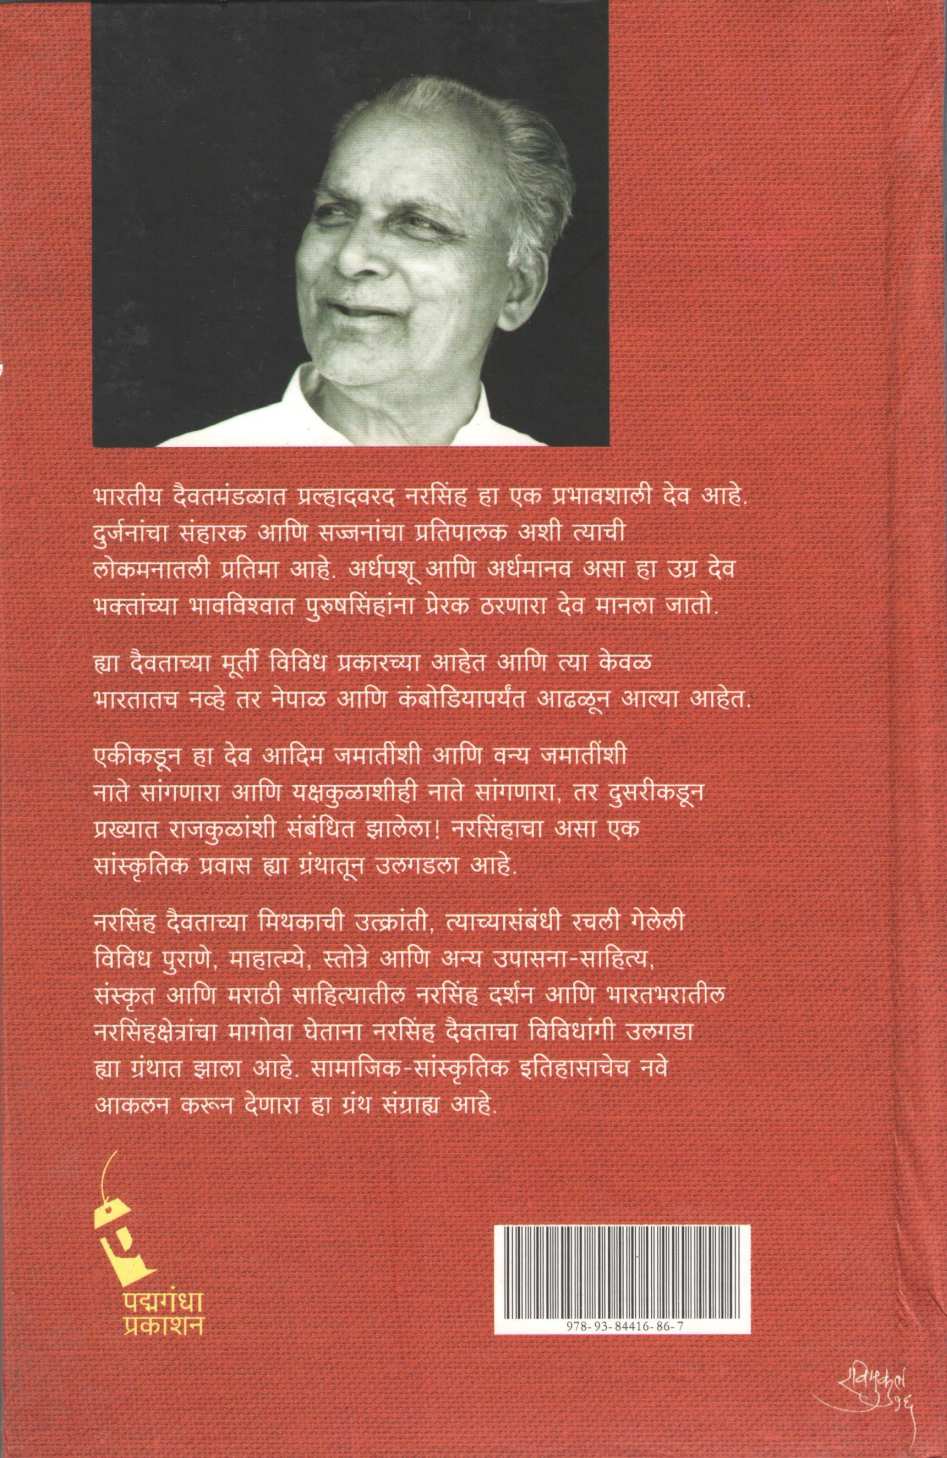 भारतीय दैवतमंडळात प्रल्हादवरद नरसिंह हा एक प्रभावशाली देव आहे.
दुर्जनांचा संहारक आणि सज्जनांचा प्रतिपालक अशी त्याची
लोकमनातली प्रतिमा आहे. अर्धपशू आणि अर्धमानव असा हा उग्र देव
भक्तांच्या भावविश्वात पुरुषसिंहांना प्रेरक ठरणारा देव मानला जातो.
ह्या दैवताच्या मूर्ती विविध प्रकारच्या आहेत आणि त्या केवळ
भारतातच नव्हे तर नेपाळ आणि कंबोडियापर्यंत आढळून आल्या आहेत.
एकीकडून हा देव आदिम जमातींशी आणि वन्य जमातींशी
नाते सांगणारा आणि यक्षकुळाशीही नाते सांगणारा, तर दुसरीकडून
प्रख्यात राजकुळांशी संबंधित झालेला! नरसिंहाचा असा एक
सांस्कृतिक प्रवास ह्या ग्रंथातून उलगडला आहे.
नरसिंह दैवताच्या मिथकाची उत्क्रांती, त्याच्यासंबंधी रचली गेलेली
विविध पुराणे, माहात्म्ये, स्तोत्रे आणि अन्य उपासना-साहित्य,
संस्कृत आणि मराठी साहित्यातील नरसिंह दर्शन आणि भारतभरातील
नरसिंहक्षेत्रांचा मागोवा घेताना नरसिंह दैवताचा विविधांगी उलगडा
ह्या ग्रंथात झाला आहे. सामाजिक-सांस्कृतिक इतिहासाचेच नवे
आकलन करून देणारा हा ग्रंथ संग्राह्य आहे.
पद्मगंधा
प्रकाशन
978-93-84416-86-7
रविमुकुल
१६